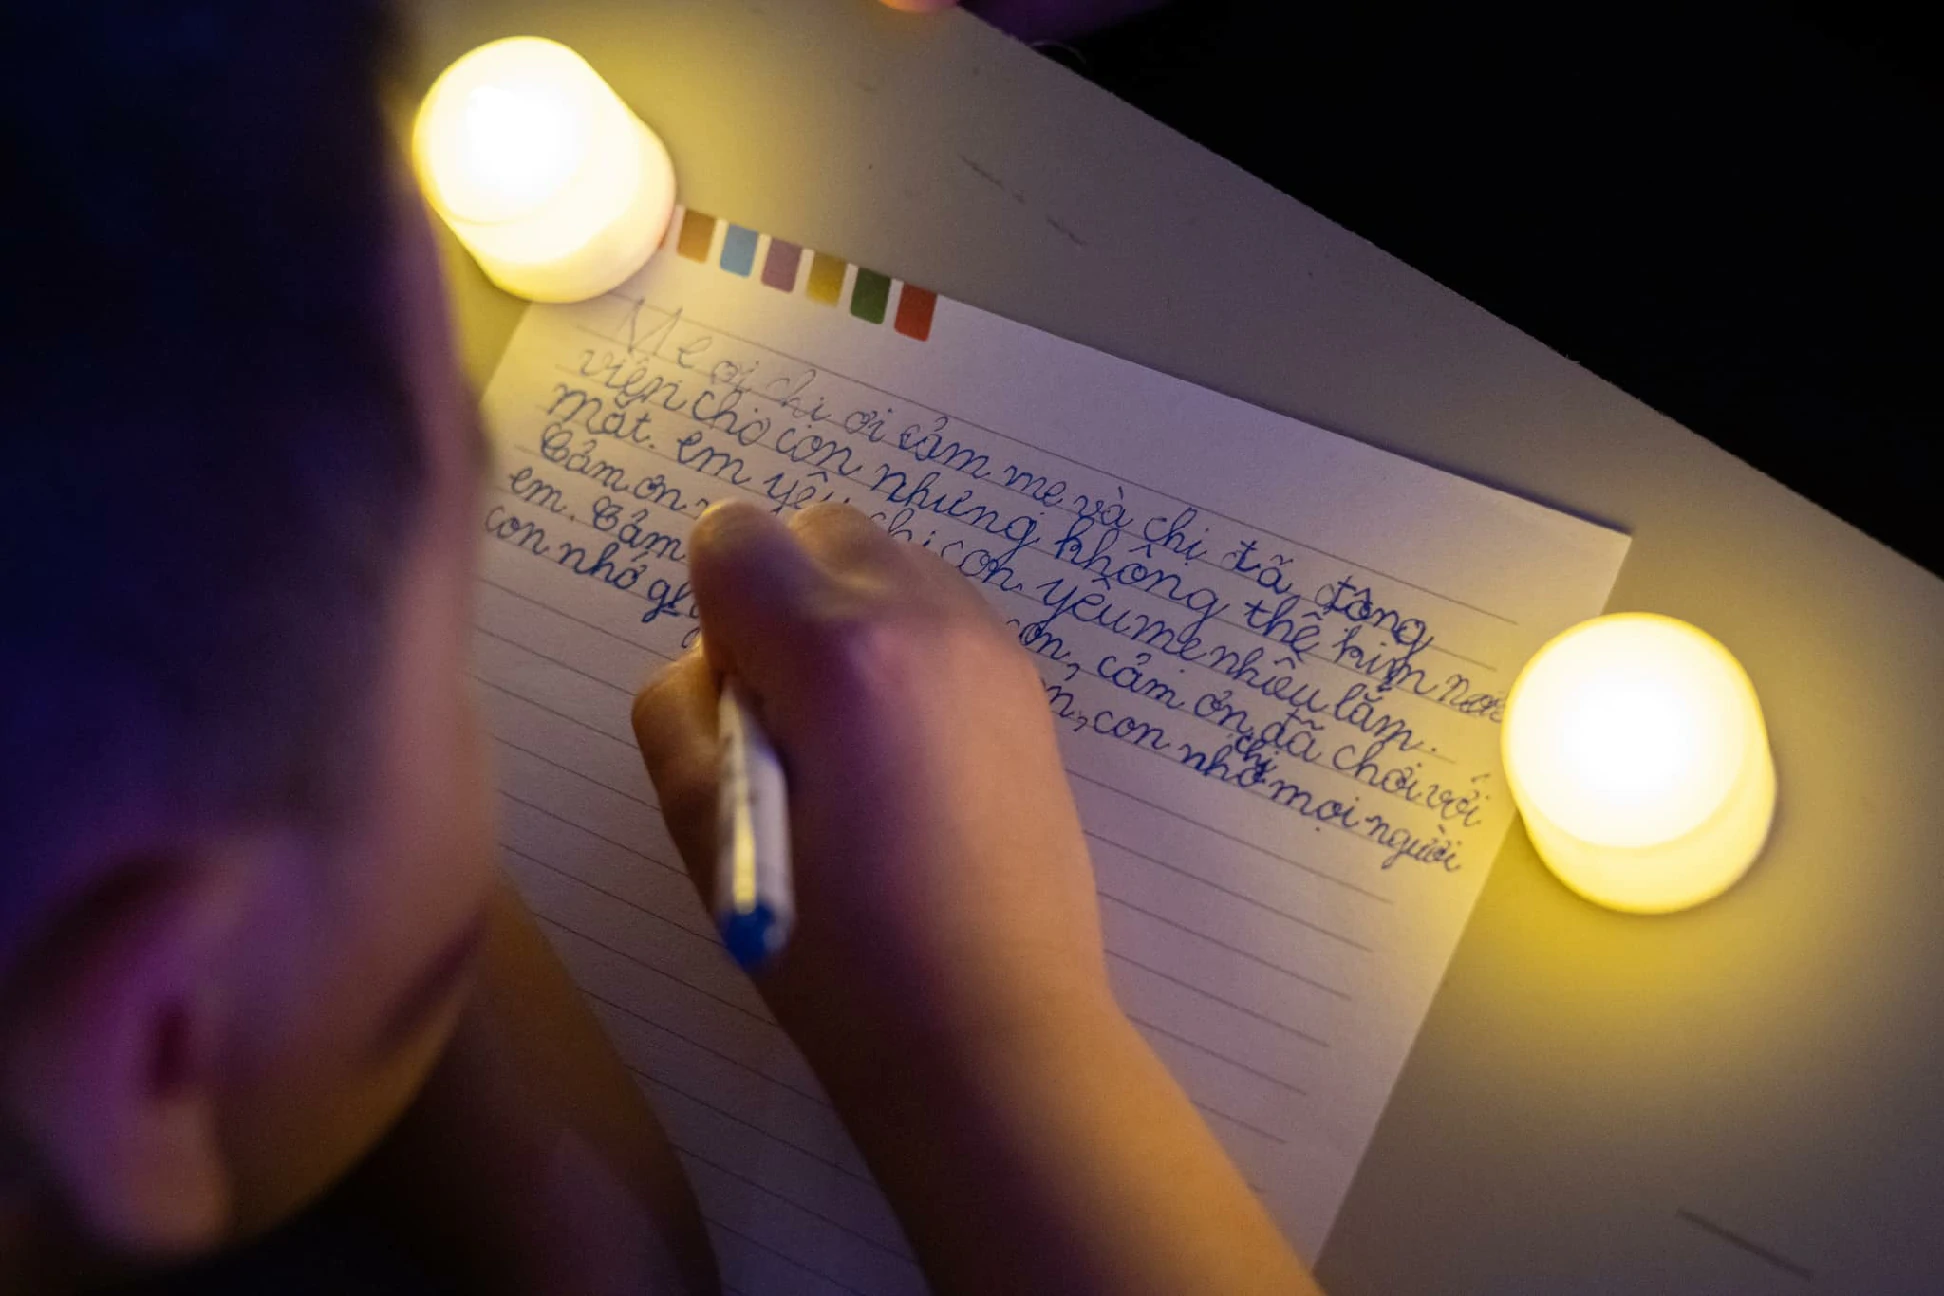 Mẹ ơi chị ơi cảm mẹ và chị đã động
viện cho con nhưng không thể kiềm nước
mắt. em yêu chị con yêu mẹ nhiều lắm.
Cảm ơn ơn, cảm ơn đã chơi với
em. Cảm ơn, con nhớ chị mọi người
con nhớ